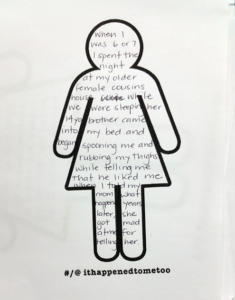 when I
was 6 or 7
I spent the
night
at my older
female cousins
house while
we were sleeping her
brother came
into my bed and
began spooning me and
rubbing my thighs
while telling me
that he liked me
When I told my
mom what
happened years
later, she
got mad
at me for
telling her.
#/@ ithappenedtometoo